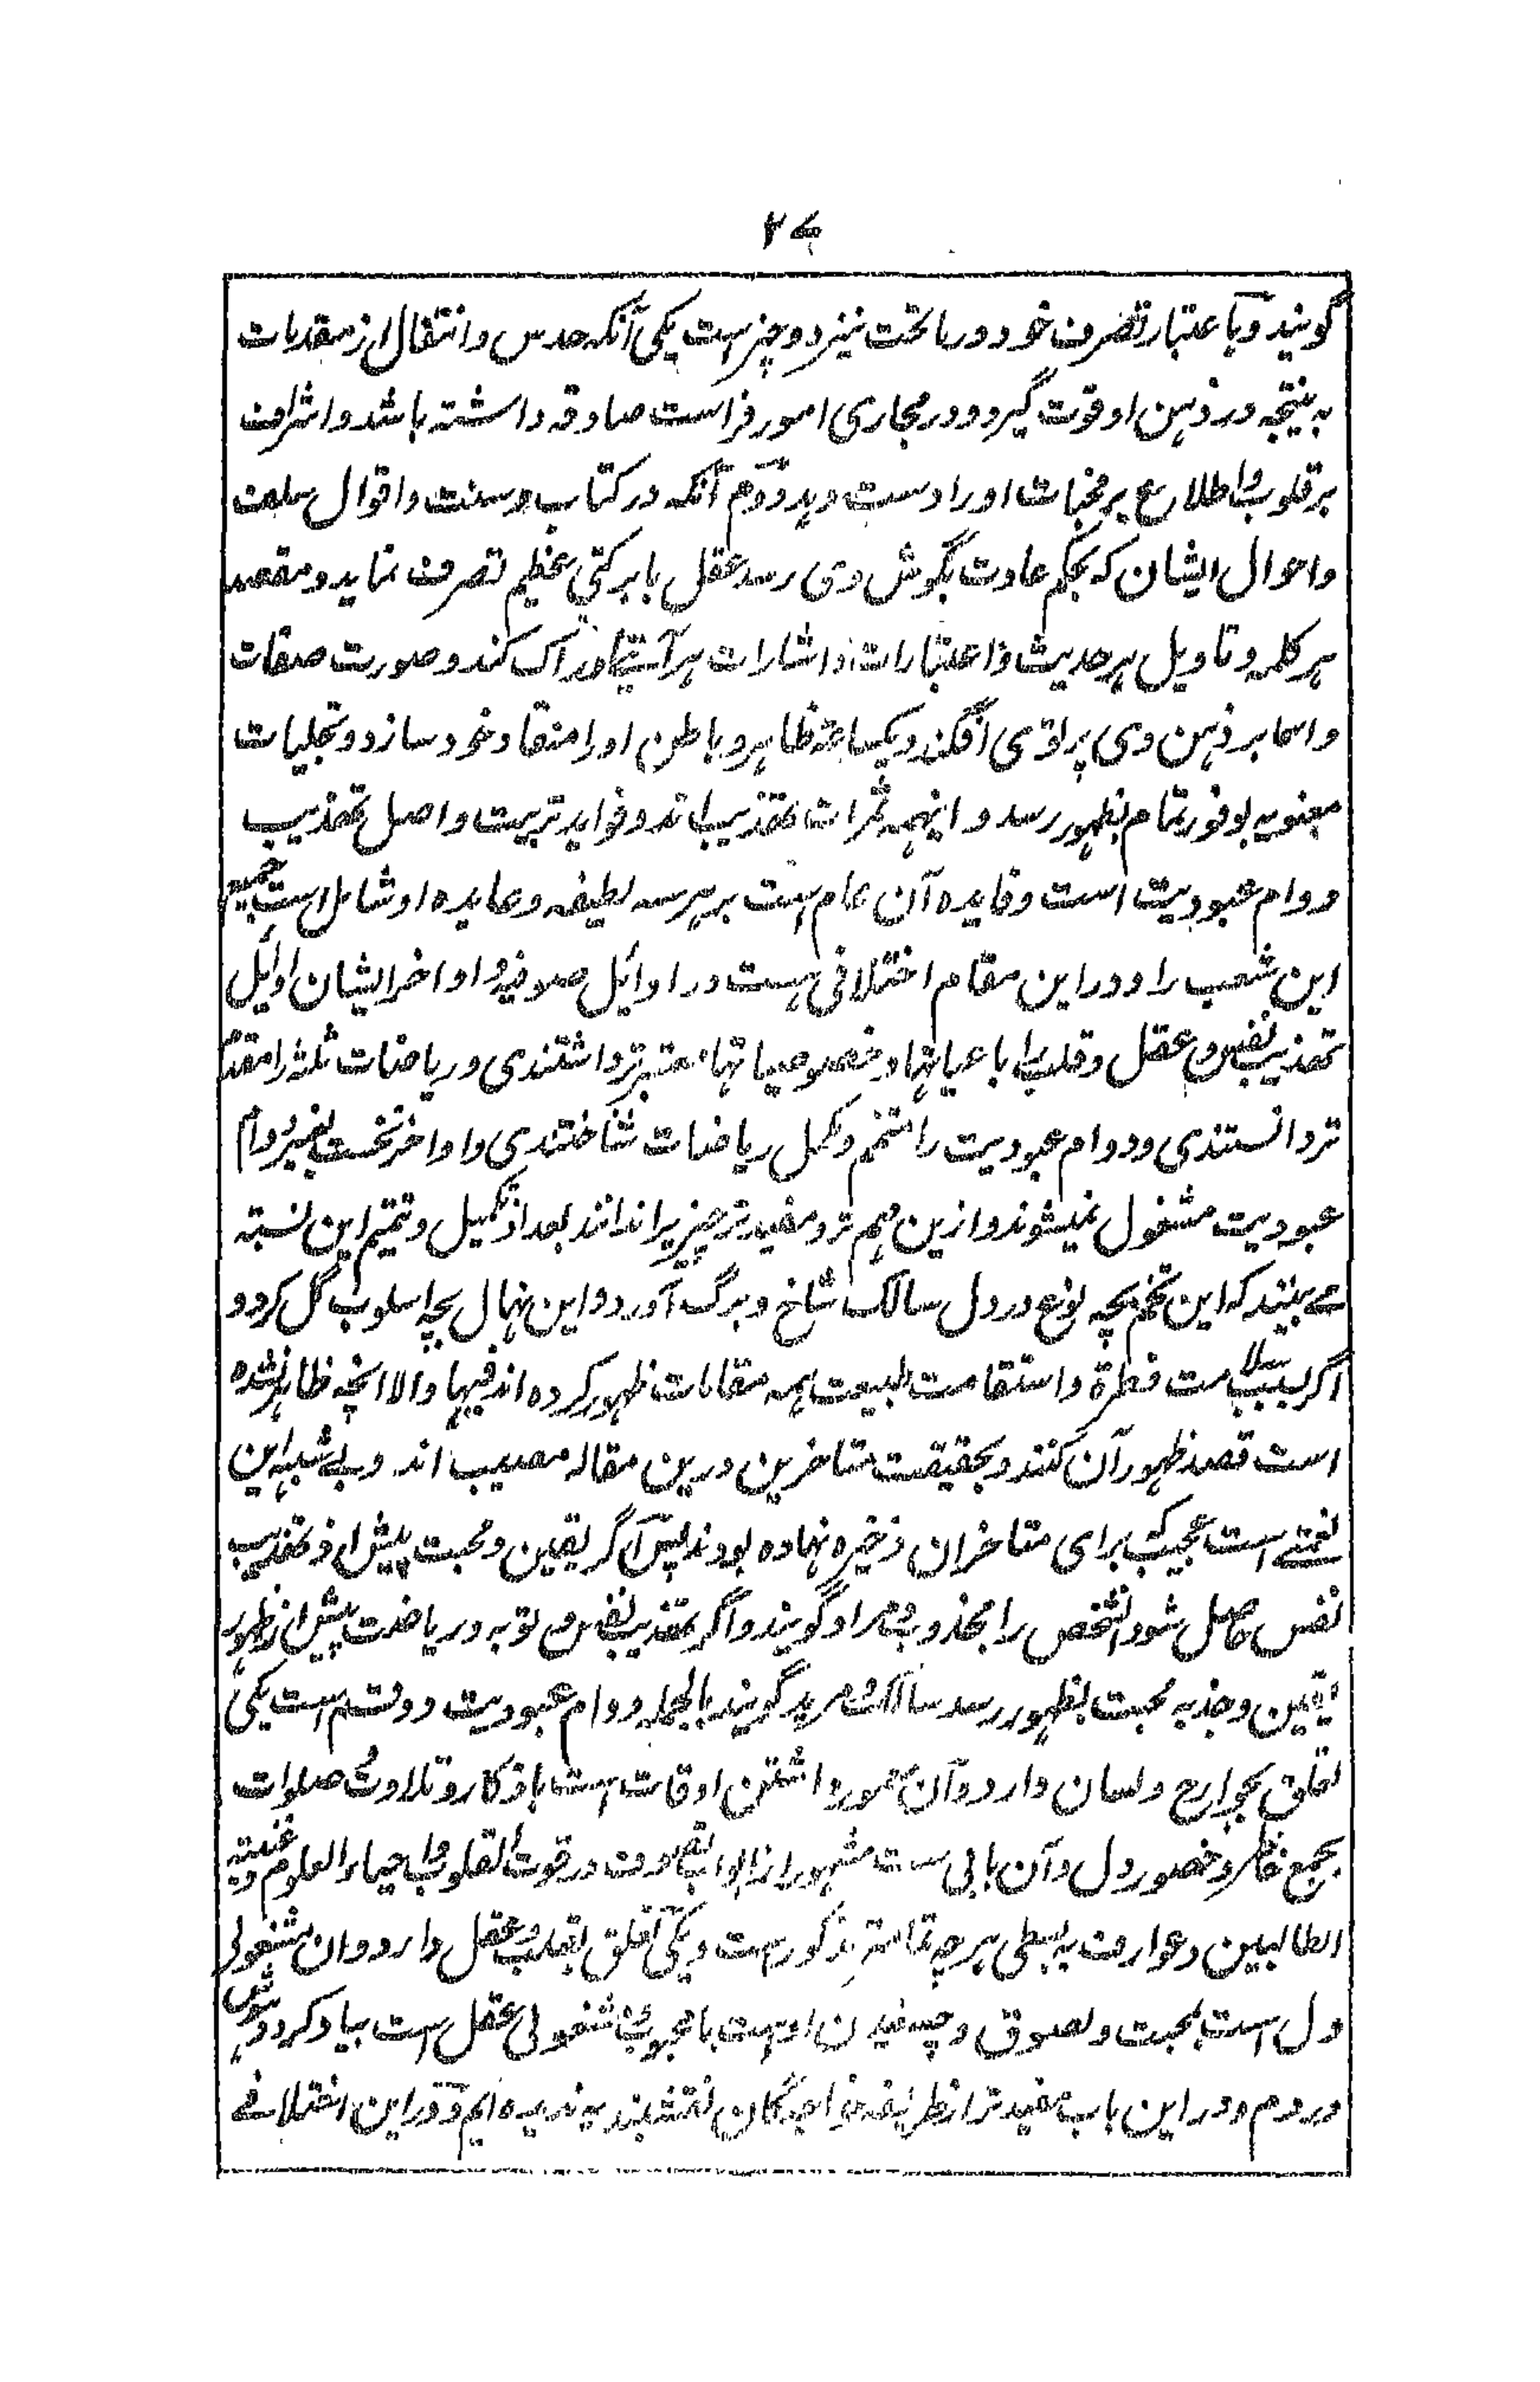 ۲۷
گویند و باعتبار تصرف خود در ماتحت نیز دو چیز است یکی آنکه حدس و انتقال از مقدمات
به نتیجه در ذهن او قوت گیرد و در مجاری امور فراست صادقه داشته باشد و اشراف
بر قلوب و اطلاع بر مخبات او را دست دهد دوم آنکه در کتاب و سنت و اقوال سلف
و احوال ایشان که بحکم عادت بگوش وی رسد عقل با برکتی عظیم تصرف نماید و مقصد
هر کلمه و تاویل هر حدیث و اعتبارات و اشارات هر آیتی ادراک کند و صورت صفات
و اسما بر ذهن وی پرتوی افگند و یکساعته ظاهر و باطن او را منقاد خود سازد و تجلیات
معنویه بوفور تمام بظهور رسد و اینهمه ثمرات تهذیب اند و فواید تربیت و اصل تهذیب
دوام عبودیت است و فایده آن عام است بر هر سه لطیفه و عایده او شامل است جمیع
این شعب را و در این مقام اختلافی هست در اوائل صوفیه و اواخر ایشان اوائل
تهذیب نفس و عقل و قلب را باعیانها و خصوصیاتها معتبر تر داشتندی و ریاضات ثلثه را مقدم
تر دانستندی و دوام عبودیت را متمم و مکمل ریاضات شناختندی و اواخر نخست بغیر دوام
عبودیت مشغول نمیشوند و ازین مهم تر و مفید تر چیزیرا ندانند بعد از تکمیل و تتمیم این نسبته
مے بینند که این تخم بچه نوع در دل سالک شاخ و برگ آورد و این نهال بچه اسلوب گل کرد و
اگر بسبب سلامت فطرة و استقامت طبیعت همه مقامات ظهور کرده اند فبها والا انچه ظاهر نشده
است قصد ظهور آن کنند و بحقیقت متاخرین درین مقاله مصیب اند و بی شبهه این
نعمتے است عجیب که برای متاخران ذخیره نهاده بودند پس اگر یقین و محبت پیش از تهذیب
نفس حاصل شود آنشخص را مجذوب و مراد گویند و اگر تهذیب نفس و توبه و ریاضت پیش از ظهور
یقین و جذبه محبت بظهور رسد سالک و مرید گویند بالجمله دوام عبودیت دو قسم است یکی
تعلق بجوارح و لسان دارد و آن معمور داشتن اوقات است باذکار و تلاوت و صلوات
بجمع خاطر و حضور دل و آن بابی ست مشهور از ابواب تصوف در قوت القلوب و احیاء العلوم و غنیة
الطالبین و عوارف به بسطی هر چه تمامتر مذکور است و یکی تعلق بقلب و عقل دارد و آن مشغولی
دل است بمحبت و لصوق و چسفیدن اوست با محبوب و مشغولی عقل است بیاد کرد و هوش
در دم و در این باب مفید تر از طریقه خواجگان نقشبندیه ندیده ایم و در این اختلافے